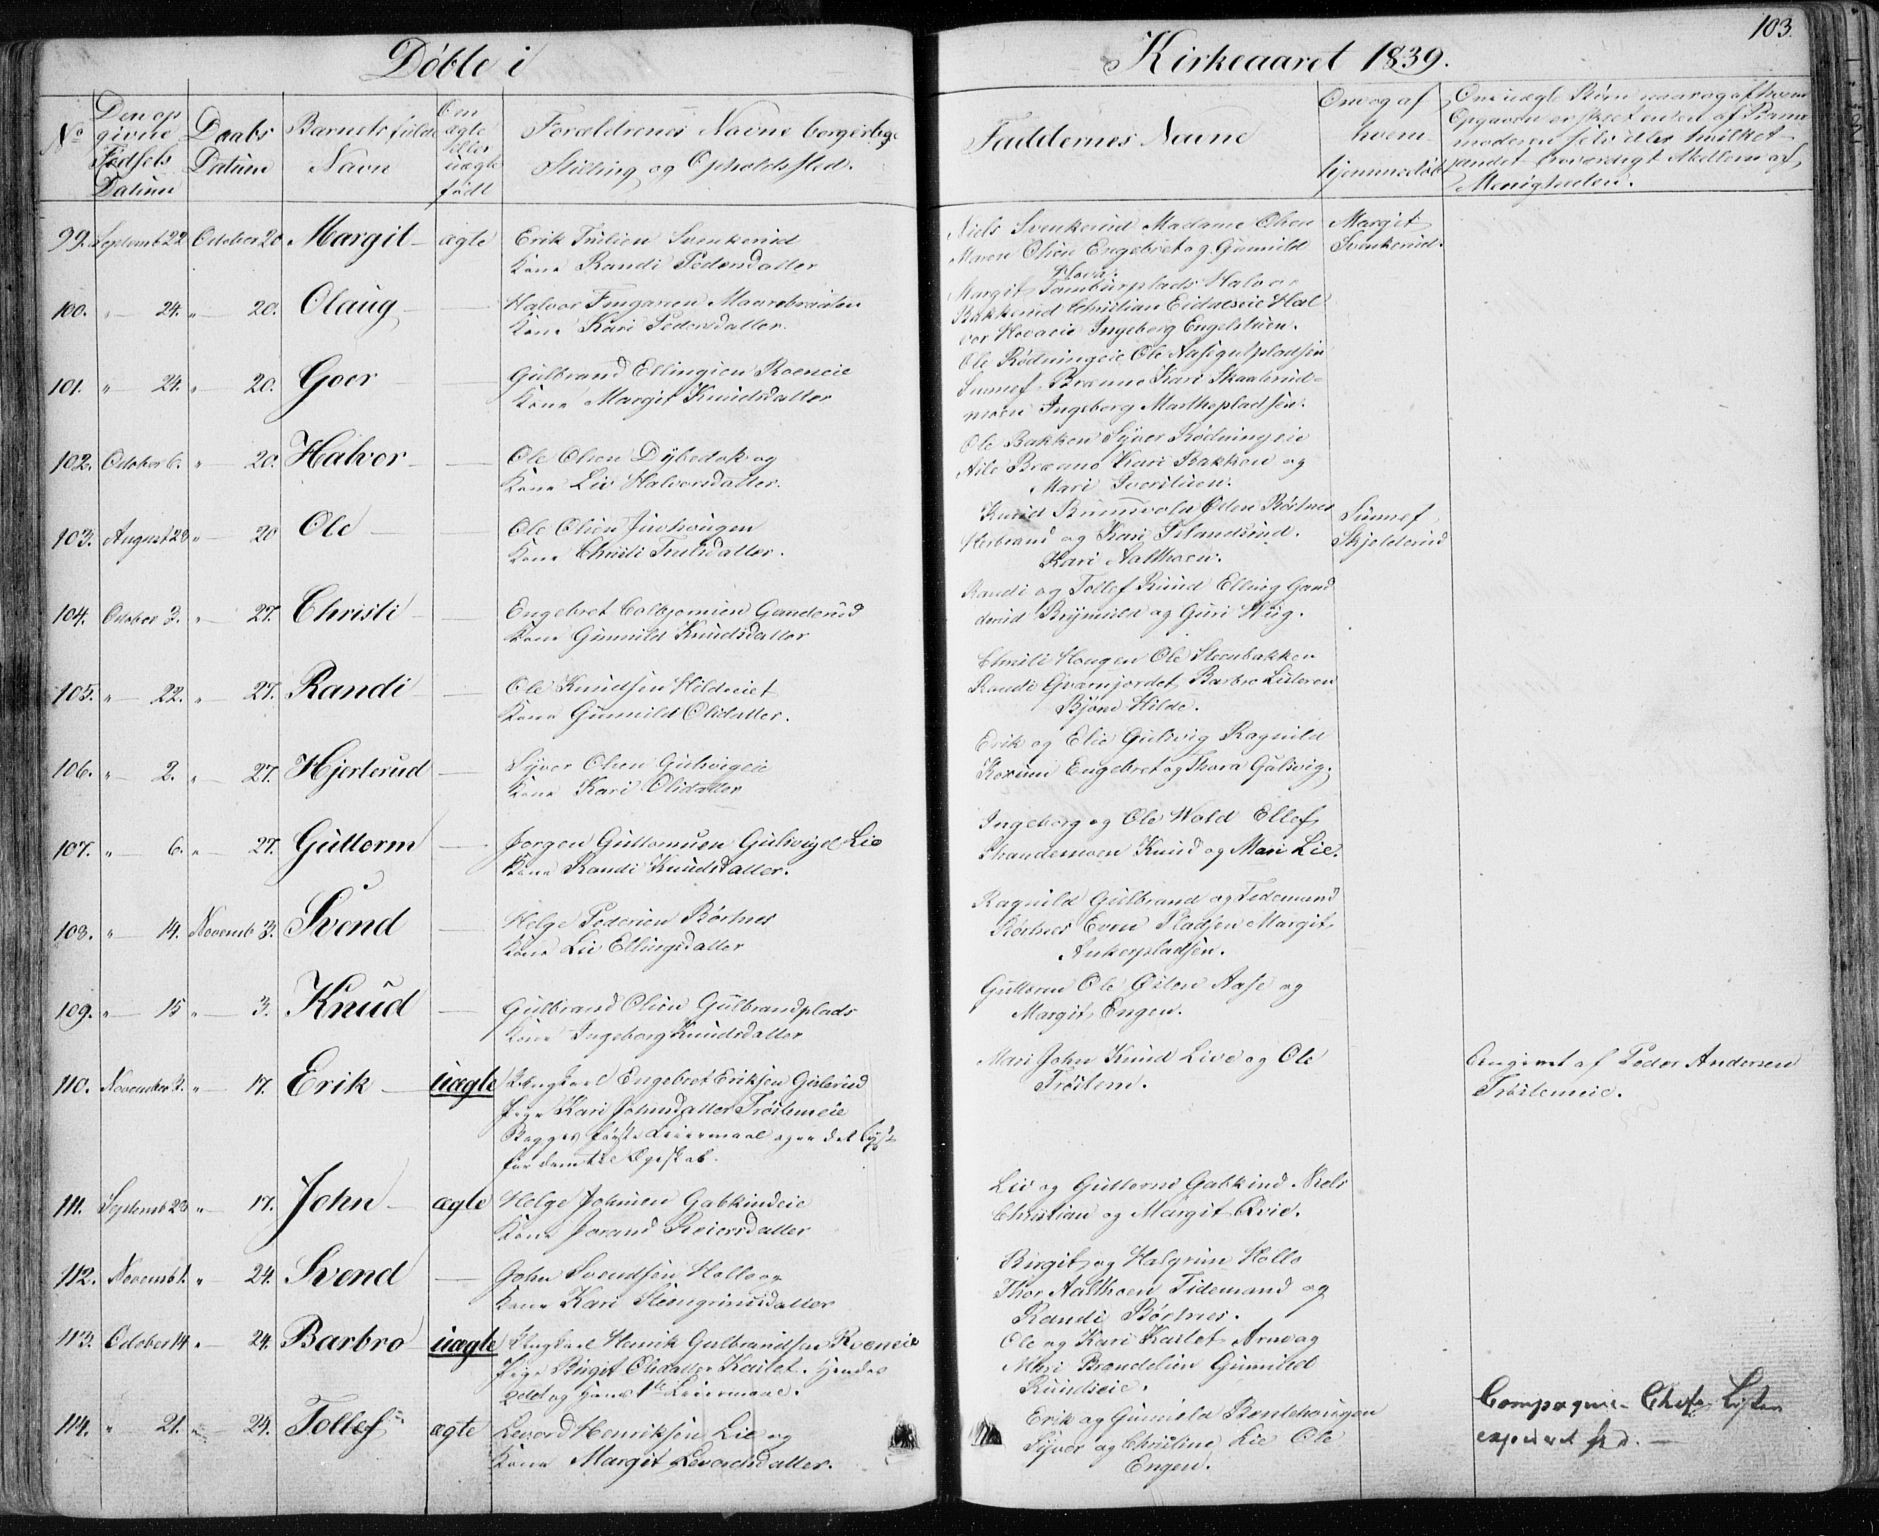 103.
Døbte i Kirkeaaret 1839.
No
Den op
givne
Fødsels
Datum
Daabs
Datum
Barnets fulde
Navn
Om
ægte
eller
uægte
født
Forældrenes Navne borgerlige
Stilling og Opholdssted.
Faddernes Navne
Om og af
hvem
hjemmedøbt
Om uægte Børn naar og af hvem
Opgaven er skeet enten af Barne
moderen selv eller hvilket
andet troværdigt Medlem af
Menigheden.
99. Septemb 22 October 20 Margit ægte Erik Trulsen Svenkerud
Kone Randi Pedersdatter
Niels Svenkerud Madame Olsen
Maren Olsen Engebret og Gunnild
Margit
Svenkerud.
100. " 24. " 20. Olaug Halvor Maurebraaten
Kone Kari Pedersdatter.
Margit Tamburplads Halvor
Bakkerud Christian Eidneseie Hal
vor Hovaeie Ingeborg Engelstuen.
101. " 24. " 20. Goer Gulbrand Ellingsen Roeneie
Kone Margit Knudsdatter
Ole Rødningeie Ole
Sunnef Brænne Kari Skaalerud-
moen Ingeborg Marthepladsen.
102. October 6. " 20. Halvor Ole Olsen Dybedok og
Kone Liv Halvorsdatter.
Ole Bakken Syver Rødningeie
Nils Brænne Kari Bakken og
Mari Iverstuen.
103. August 23 " 20 Ole Ole Olsen Juvhougen
Kone Christi Trulsdatter.
Knud Rumsvold Oden Børtnes
Herbrand og Kari Felandsrud.
Kari Aalthoen.
Sunnef
Skjelderud
104. October 3. " 27. Christi Engebret Colbjørnsen Ganderud
Kone Gunnild Knudsdatter
Randi og Tollef Ruud Elling Gand
derud Brynnild og Guri Haug.
105. " 22. " 27. Randi Ole Knudsen Hildreiet
Kone Gunnild Olsdatter.
Christi Haugen Ole Steenbakken
Randi Qværnjordet Barbro Liideren
Bjørn Hilde.
106. " 2. " 27. Hjerterud Syver Olsen Gulsvigeie
Kone Kari Olsdatter
Erik og Elie Gulsvig Ragnild
Engebret og Thora Gulsvig.
107. " 6. " 27. Guttorm Jørgen Guttormsen Gulsvigeie Lie
Kone Randi Knudsdatter.
Ingeborg og Ole Wold Ellef
Strandemoen Knud og Mari Lie.
108. " 14. Novemb 3. Svend Helge Pedersen Børtnes
Kone Liv Ellingsdatter
Ragnild Gulbrand og Tidemand
Børtnes Even Pladsen Margit
Ankerpladsen.
109. " 15 " 3. Knud Gulbrand Olsen Gulbrandplads
Kone Ingeborg Knudsdatter
Guttorm Ole Østen Aase og
Margit Engen.
110. November 3. " 17. Erik uægte Ungkarl Engebret Eriksen Gislerud
Pige Kari Johnsdatter Trøstemeie
Begges første Leiermaal og er det lyst
for dem til Ægteskab.
Mari John Knud Live og Ole
Trøstem.
Angivet af Peder Andersen
Trøstemeie.
111. Septemb 23 " 17. John ægte Helge Johnsen Gabkindeie
Kone Jorand Reiersdatter
Liv og Guttorm Gabkind Niels
Christian og Margit Qvie.
112. Novemb 1. " 24. Svend John Svendsen Hollo og
Kone Kari Steengrimsdatter
Birgit og Halgrim Hollo
Thor Aalthoen Tidemand og
Randi Børtnes.
113. October 14. " 24. Barbro uægte Ungkarl Henrik Gulbrandsen Roeneie
Pige Birgit Olsdatter Kastet. Hendes
2det og Hans 1te Leiermaal.
Ole og Kari Kastet Arne og
Mari Brændelien Gunnild
Ruudseie.
114. " 21. " 24. Tollef ægte Levord Henriksen Lie og
Kone Margit Levordsdatter.
Erik og Gunnild Bentehougen
Syver og Christine Lie Ole
Engen.
Compagnie Chefs Listen